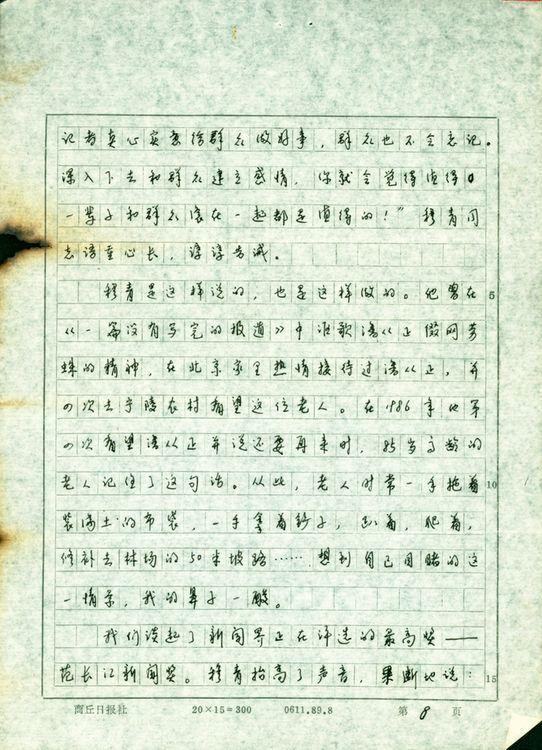 记者真心实意给群众做好事，群众也不会忘记。
深入下去和群众建立感情，你就会觉得值得。
一辈子和群众滚在一起都是值得的！”穆青同
志语重心长，谆谆告诫。
穆青是这样说的，也是这样做的。他曾在
《一篇没有写完的报道》中讴歌潘从正 网劳
蛛的精神，在北京家里热情接待过潘从正，并
四次去宁陵农村看望这位老人。在1986年他第
四次看望潘从正并说还要再来时，85岁高龄的
老人记住了这句话。从此，老人时常一手拖着
装满土的布袋，一手拿着 子，趴着，爬着，
修补去林场的50米坡路……想到自己目睹的这
一情景，我的鼻子一酸。
我们谈起了新闻界正在评选的最高奖——
范长江新闻奖。穆青抬高了声音，果断地说：
5
10
15
商丘日报社 20×15=300 0611.89.8 第 8 页